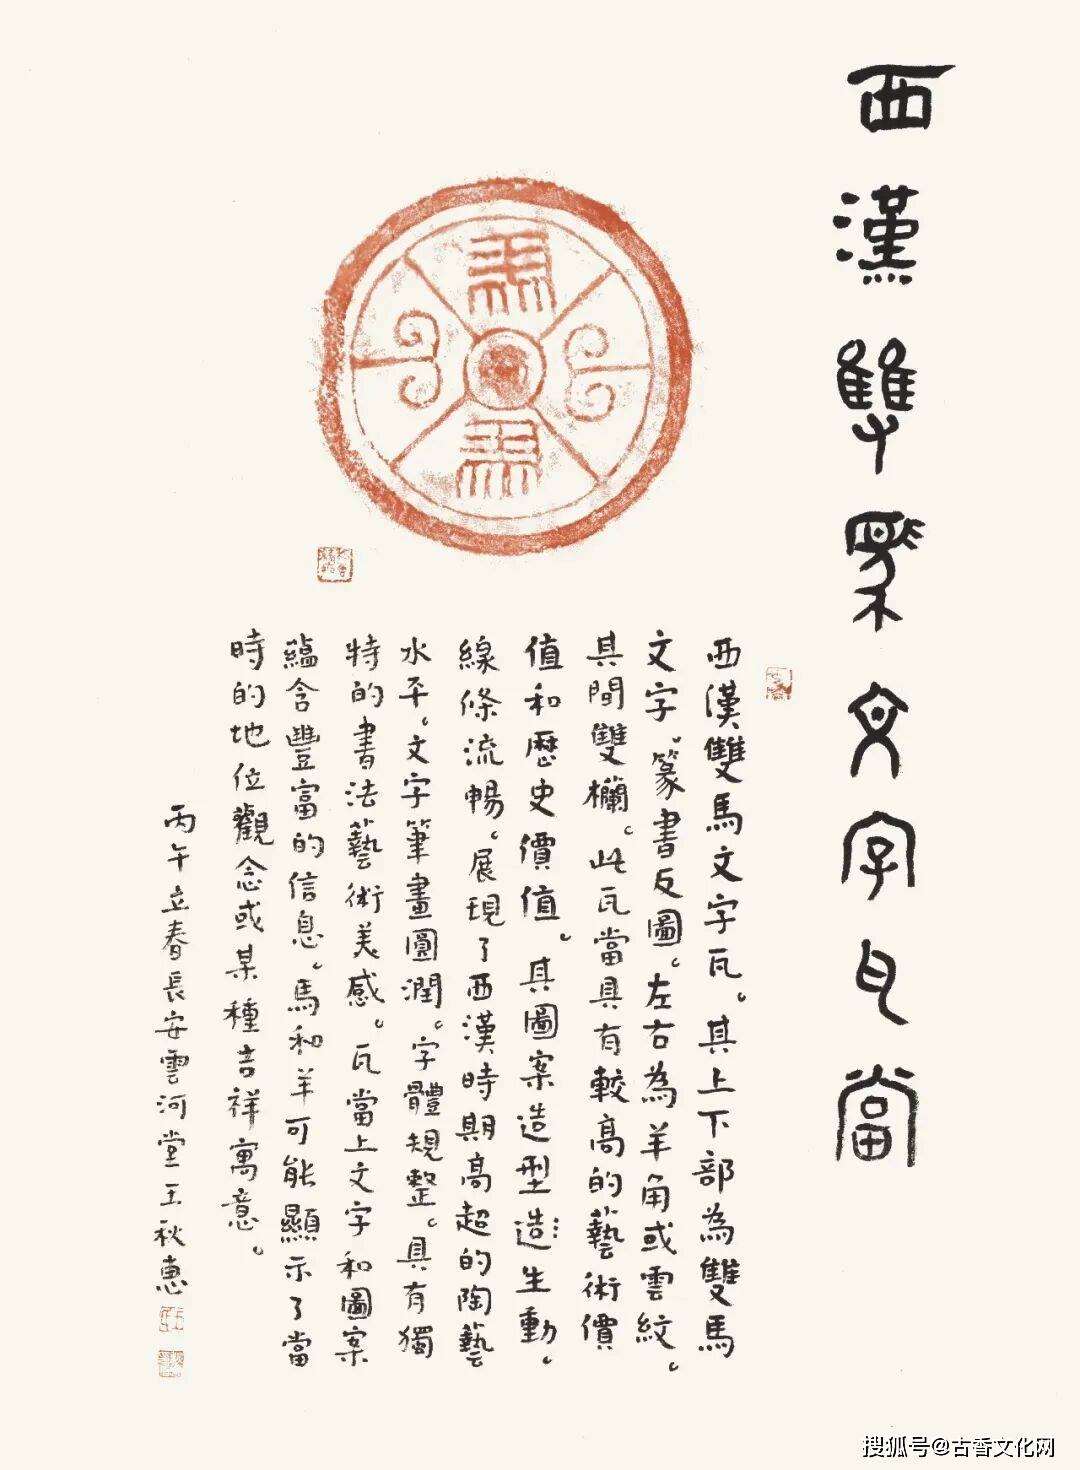 西漢雙馬文字瓦當
馬
馬
西漢雙馬文字瓦。其上下部為雙馬
文字。篆書反圖。左右為羊角或雲紋。
其間雙欄。此瓦當具有較高的藝術價
值和歷史價值。其圖案造型造生動。
線條流暢。展現了西漢時期高超的陶藝
水平。文字筆畫圓潤。字體規整。具有獨
特的書法藝術美感。瓦當上文字和圖案
蘊含豐富的信息。馬和羊可能顯示了當
時的地位觀念或某種吉祥寓意。
丙午立春長安雲河堂王秋惠
搜狐号@古香文化网